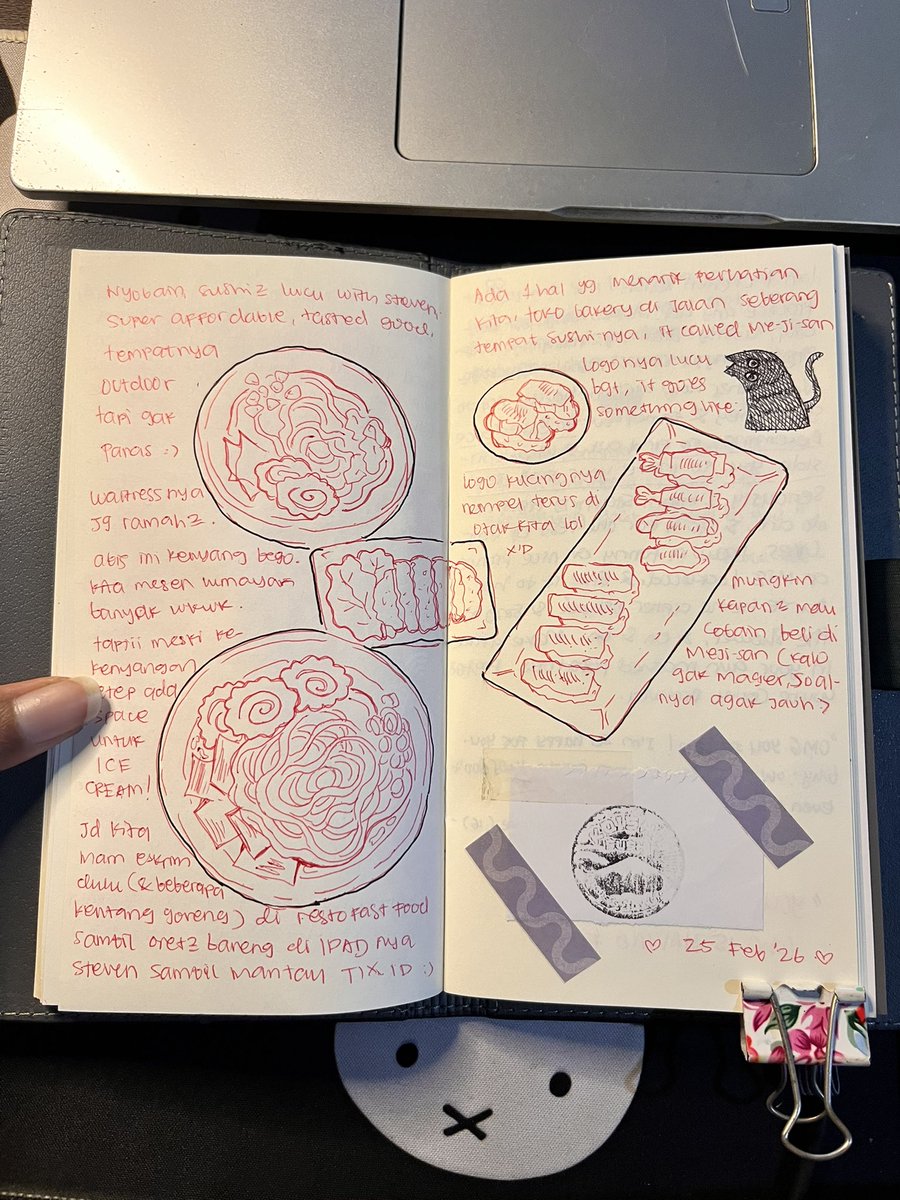 Nyobain sushi2 lucu with steven.
super affordable, tasted good,
tempatnya
outdoor
tapi gak
panas :)
waitress nya
jg ramah2.
abis ini kenyang bego.
kita mesen lumayan
banyak wkwk.
tapii meski ke-
kenyangan
tetep ada
space
untuk
ICE
CREAM!
Jd kita
mam eskrim
dulu (& beberapa
kentang goreng) di resto fast food
sambil oret2 bareng di IPAD nya
steven sambil mantau TIX ID :)
Ada 1 hal yg menarik perhatian
kita, toko bakery di jalan seberang
tempat sushi-nya, it called Me-ji-san
logonya lucu
bgt, it goes
something like:
logo kucingnya
nempel terus di
otak kita lol
X'D
mungkin
kapan2 mau
cobain beli di
Meji-san (kalo
gak mager, soal-
nya agak jauh >
♡ 25 Feb '26 ♡